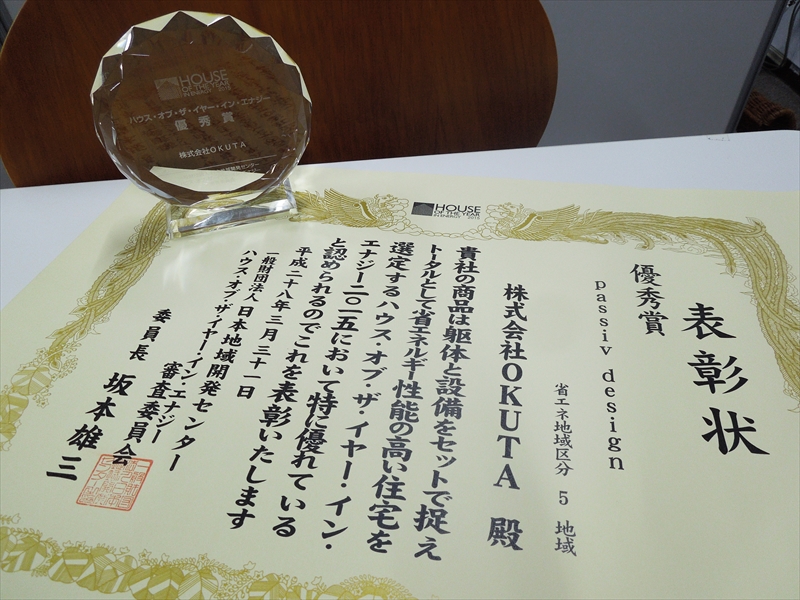 HOUSE
OF THE YEAR
IN ENERGY 2015
ハウス・オブ・ザ・イヤー・イン・エナジー
優秀賞
株式会社OKUTA
HOUSE
OF THE YEAR
IN ENERGY 2015
表彰状
優秀賞
passiv design
省エネ地域区分 5 地域
株式会社OKUTA 殿
貴社の商品は躯体と設備をセットで捉え
トータルとして省エネルギー性能の高い住宅を
選定するハウス・オブ・ザ・イヤー・イン・
エナジー二〇一五において特に優れている
と認められるのでこれを表彰いたします
平成二十八年三月三十一日
一般財団法人 日本地域開発センター
ハウス・オブ・ザ・イヤー・イン・エナジー
審査委員会
委員長 坂本雄三